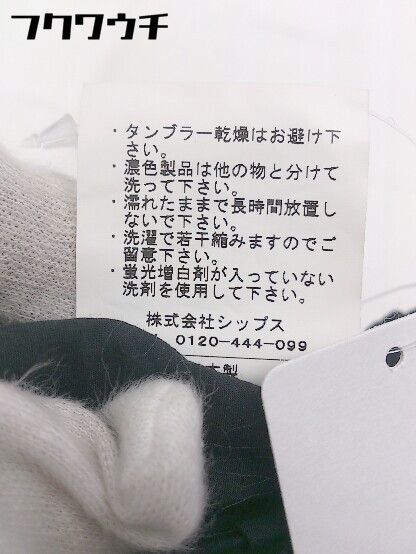 フクワウチ
・タンブラー乾燥はお避け下
さい。
・濃色製品は他の物と分けて
洗って下さい。
・濡れたままで長時間放置し
ないで下さい。
・洗濯で若干縮みますのでご
留意下さい。
・蛍光増白剤が入っていない
洗剤を使用して下さい。
株式会社シップス
0120-444-099
本製